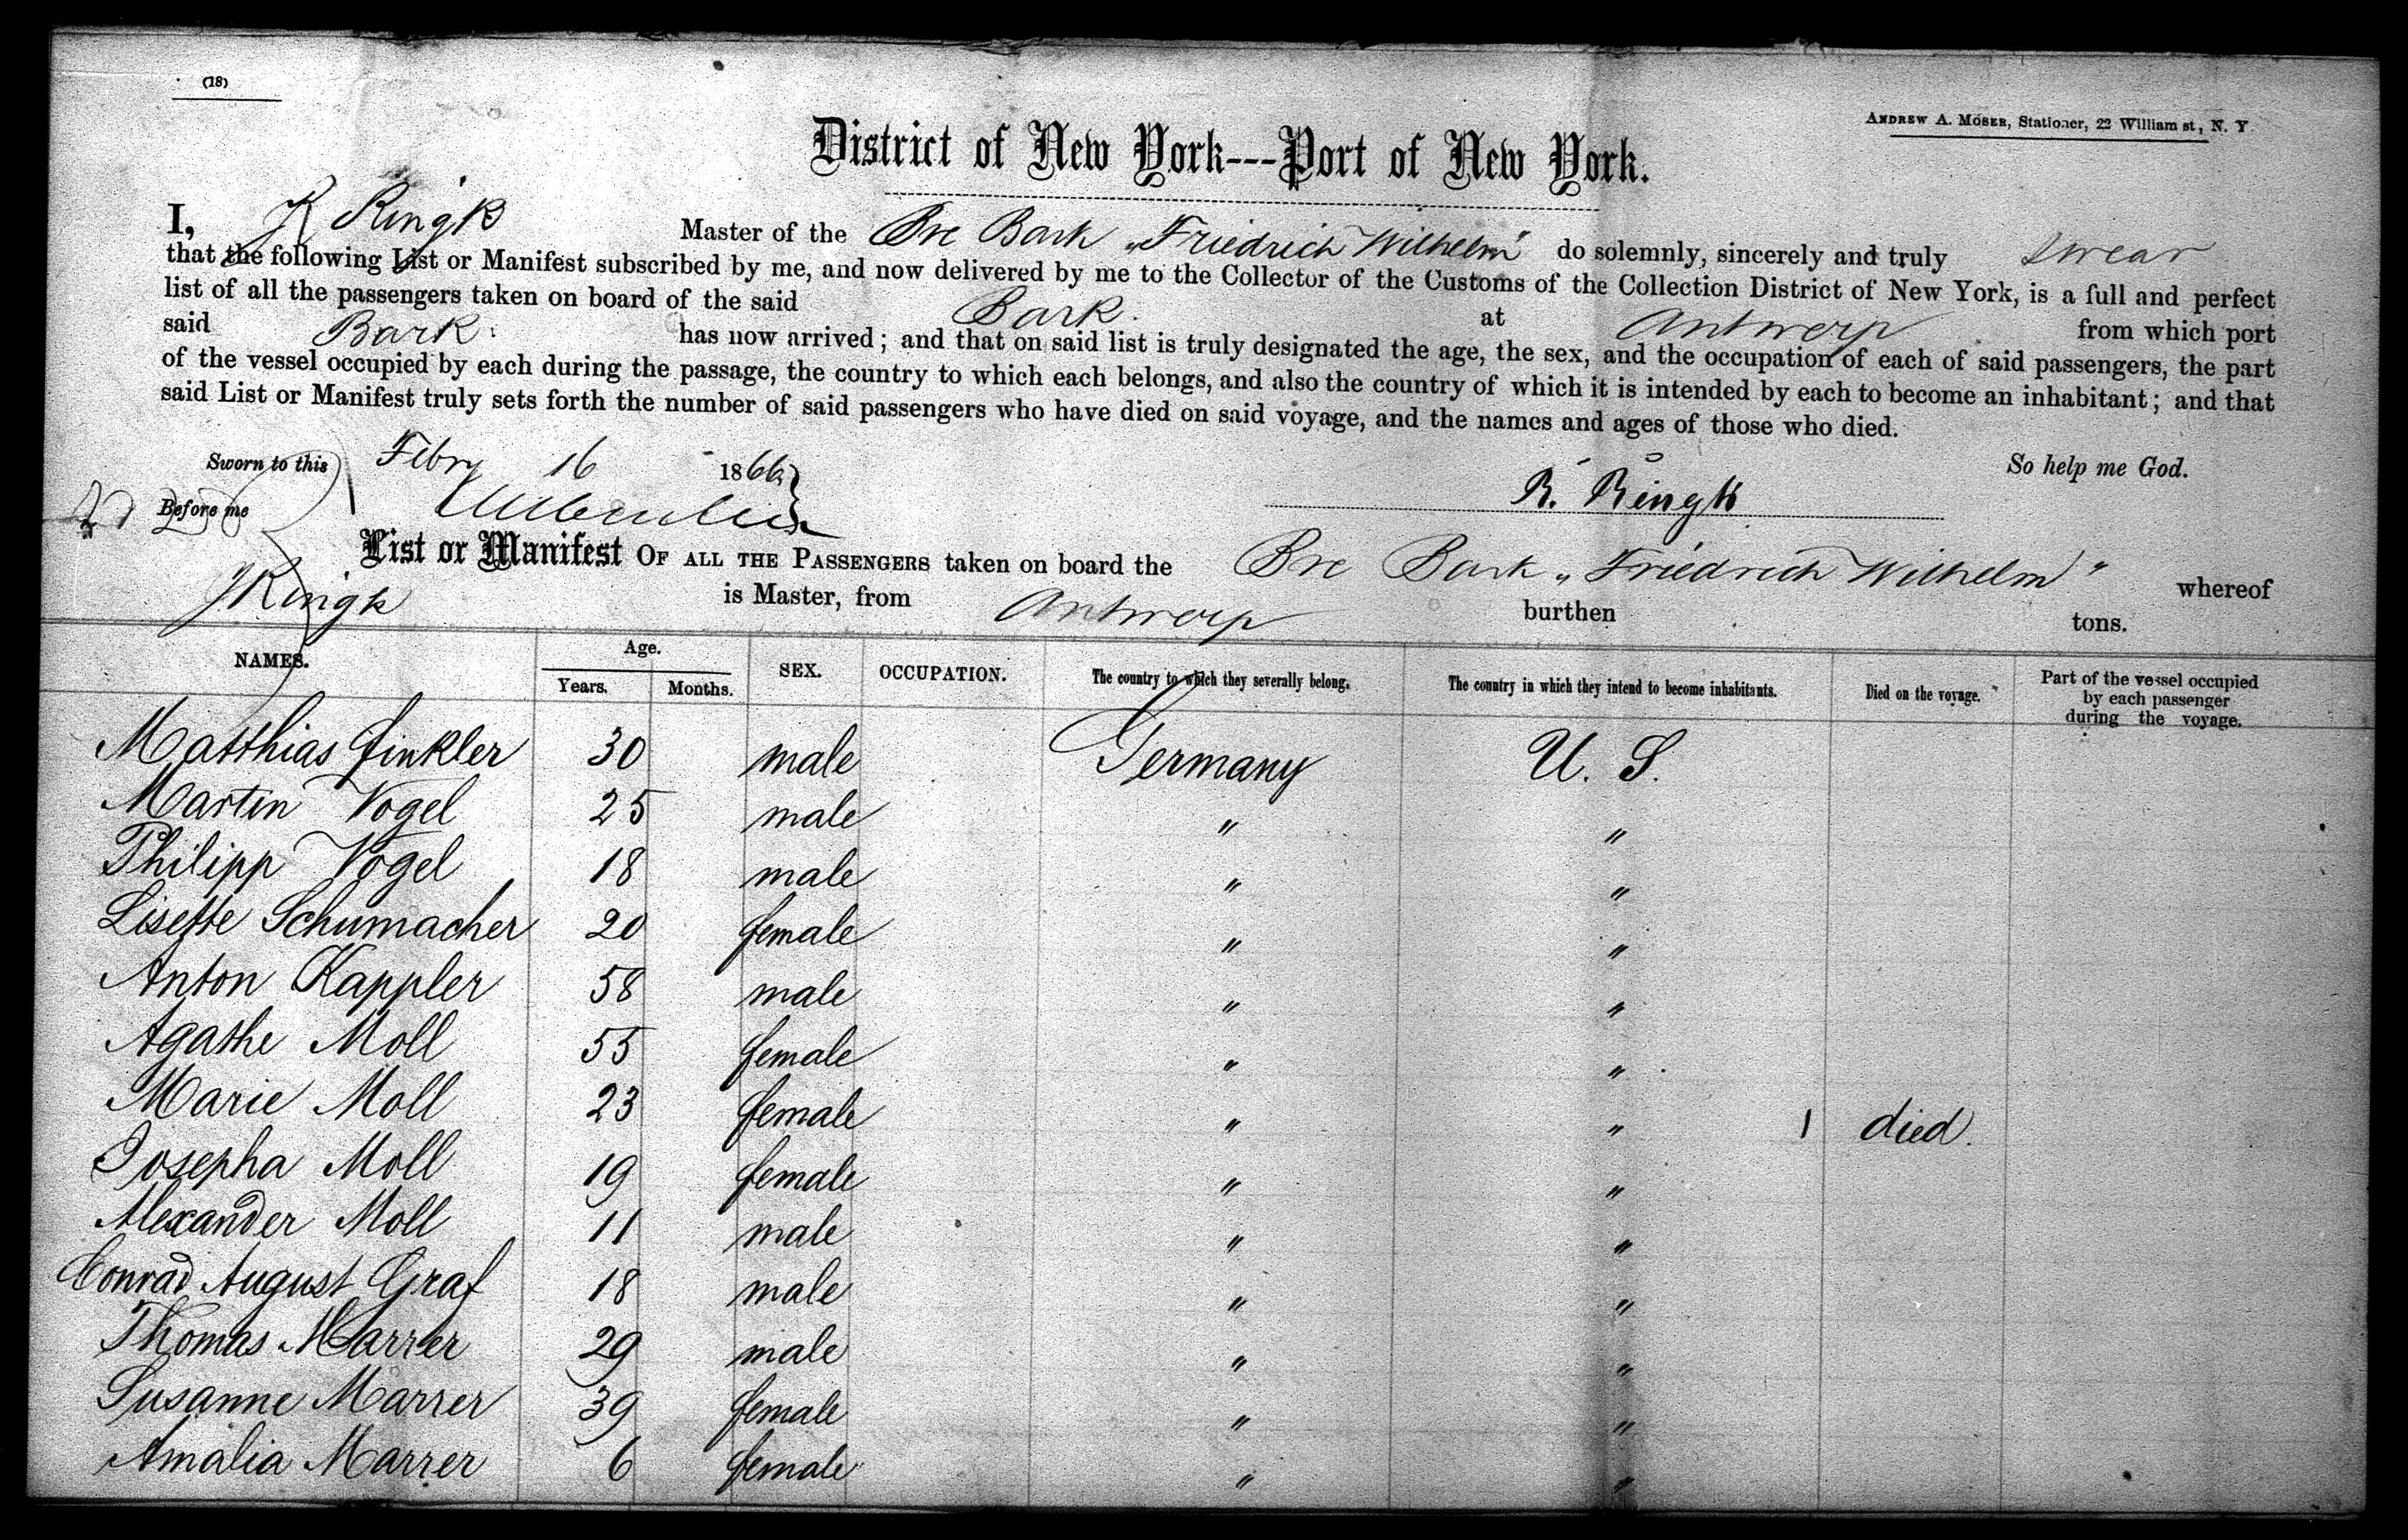 (18)
ANDREW A. MOSER, Stationer, 22 William st, N. Y.
District of New York---Port of New York.
I, Ringk Master of the Bre Bark „Friedrich Wilhelm" do solemnly, sincerely and truly swear
that the following List or Manifest subscribed by me, and now delivered by me to the Collector of the Customs of the Collection District of New York, is a full and perfect
list of all the passengers taken on board of the said Bark. at Antwerp from which port
said Bark. has now arrived; and that on said list is truly designated the age, the sex, and the occupation of each of said passengers, the part
of the vessel occupied by each during the passage, the country to which each belongs, and also the country of which it is intended by each to become an inhabitant; and that
said List or Manifest truly sets forth the number of said passengers who have died on said voyage, and the names and ages of those who died.
So help me God.
Sworn to this Febry 16 1866
R. Ringk
Before me
List or Manifest OF ALL THE PASSENGERS taken on board the Bre Bark „Friedrich Wilhelm" whereof
Ringk is Master, from Antwerp burthen tons.
NAMES. Age. Years. Months. SEX. OCCUPATION. The country to which they severally belong. The country in which they intend to become inhabitants. Died on the voyage. Part of the vessel occupied by each passenger during the voyage.
Matthias Finkler 30 male Germany U. S.
Martin Vogel 25 male " "
Philipp Vogel 18 male " "
Lisette Schumacher 20 female " "
Anton Kappler 58 male " "
Agathe Moll 55 female " "
Marie Moll 23 female " " 1 died.
Josepha Moll 19 female " "
Alexander Moll 11 male " "
Conrad August Graf 18 male " "
Thomas Marrer 29 male " "
Susanne Marrer 39 female " "
Amalia Marrer 6 female " "